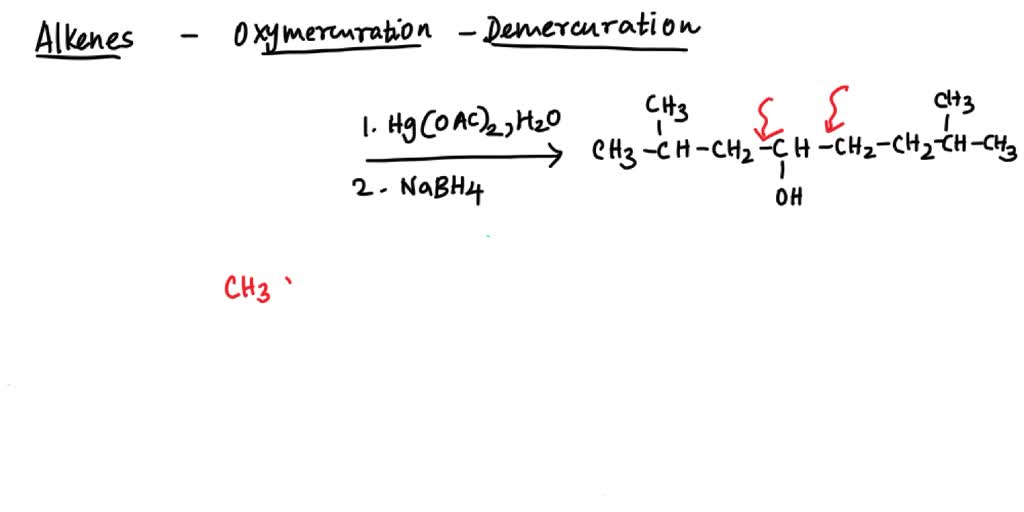 Alkenes - Oxymercuration - Demercuration
1. Hg(OAC)2, H2O
2. NaBH4
CH3 CH3
CH3-CH-CH2-CH-CH2-CH2-CH-CH3
OH
CH3